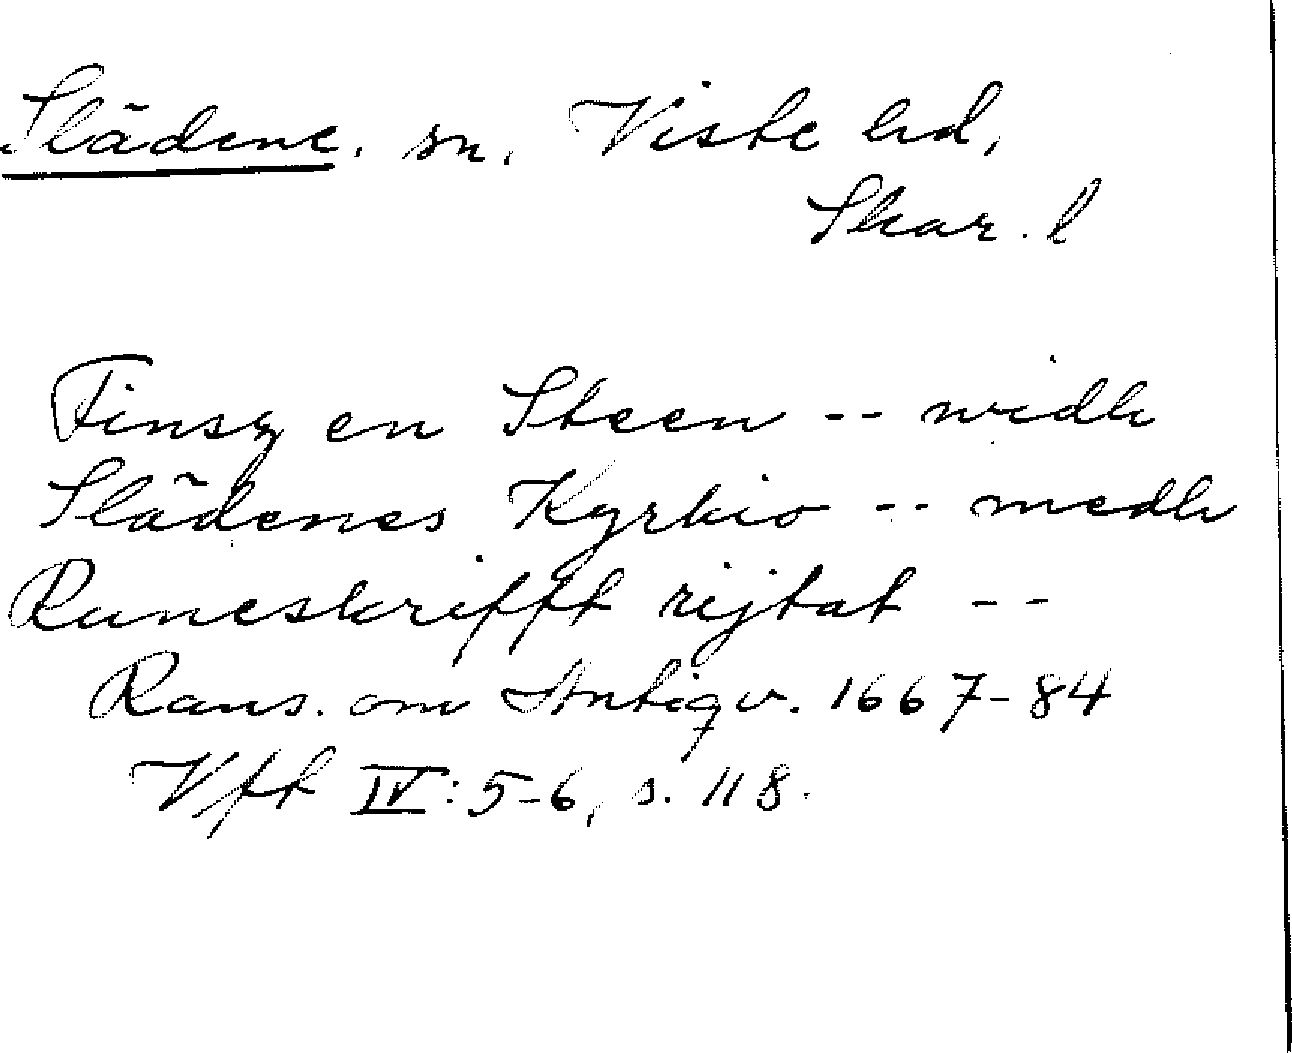 Slädene. sn. Viste hd,
Skar. l
Finsz en Steen -- widh
Slädenes Kyrkio -- medh
Runeskrifft rijtat --
Rans. om Antiqv. 1667-84
Vft IV:5-6, s. 118.